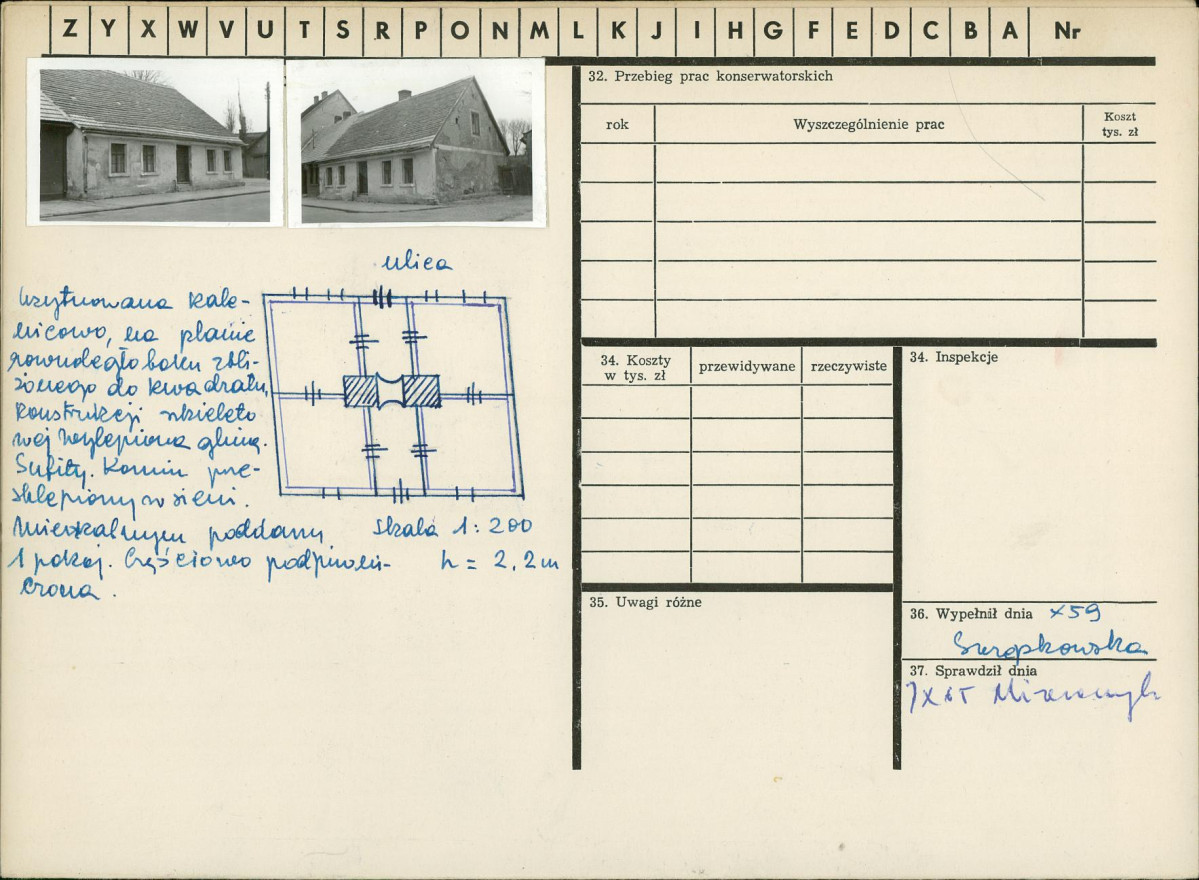 Z Y X W V U T S R P O N M L K J I H G F E D C B A Nr
ulica
Usytuowana kale-
nicowo, na planie
równoległoboku zbli-
żonego do kwadratu,
konstrukcji szkieleto
wej wylepiona gliną.
Sufity. Komin prze-
sklepiony w sieni.
Mieszkalnym poddaszu
1 pokój. Częściowo podpiwni-
czona.
skala 1:200
h = 2,2m
32. Przebieg prac konserwatorskich
rok Wyszczególnienie prac Koszt
tys. zł
34. Koszty
w tys. zł
przewidywane rzeczywiste
34. Inspekcje
35. Uwagi różne
36. Wypełnił dnia X 59
37. Sprawdził dnia